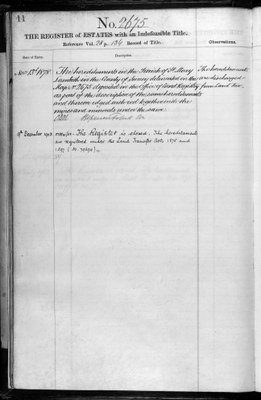 11
No. 2675
THE REGISTER of ESTATES with an Indefeasible Title.
Reference Vol. 34 p. 136 Record of Title.
Date of Entry.
Description.
Observations.
Nov. 15th 1870
The hereditaments in the Parish of St. Mary
Lambeth in the County of Surrey delineated on the
Map No. 2675 deposited in the Office of Land Registry
as part of the description of the same hereditaments
and thereon edged with red together with the
mines and minerals under the same.
The hereditaments
are discharged
from Land Tax.
The Register is closed. The hereditaments
are registered under the Land Transfer Acts 1875 and
1897